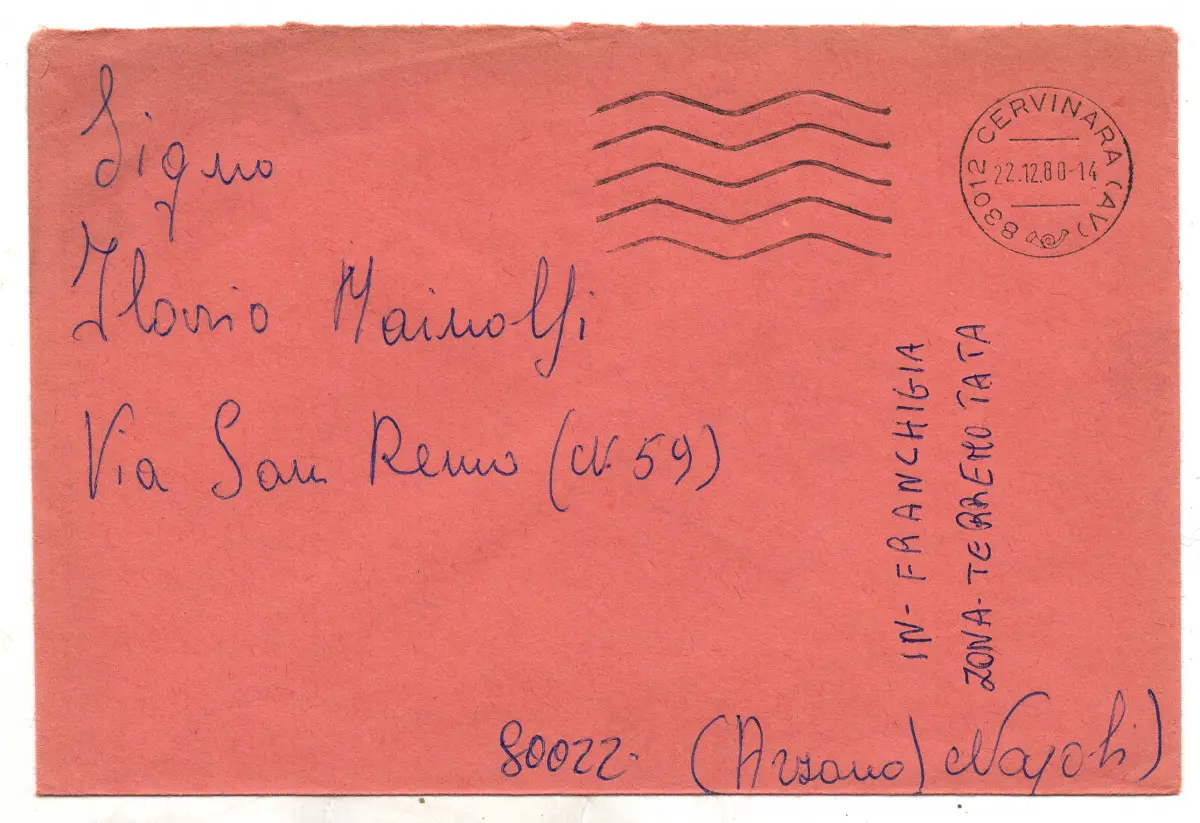 Signo
Flavio Mainolfi
Via San Remo (N. 59)
80022. (Arzano) Napoli)
IN-FRANCHIGIA
ZONA-TERREMOTATA
83012 CERVINARA (AV)
22.12.80-14